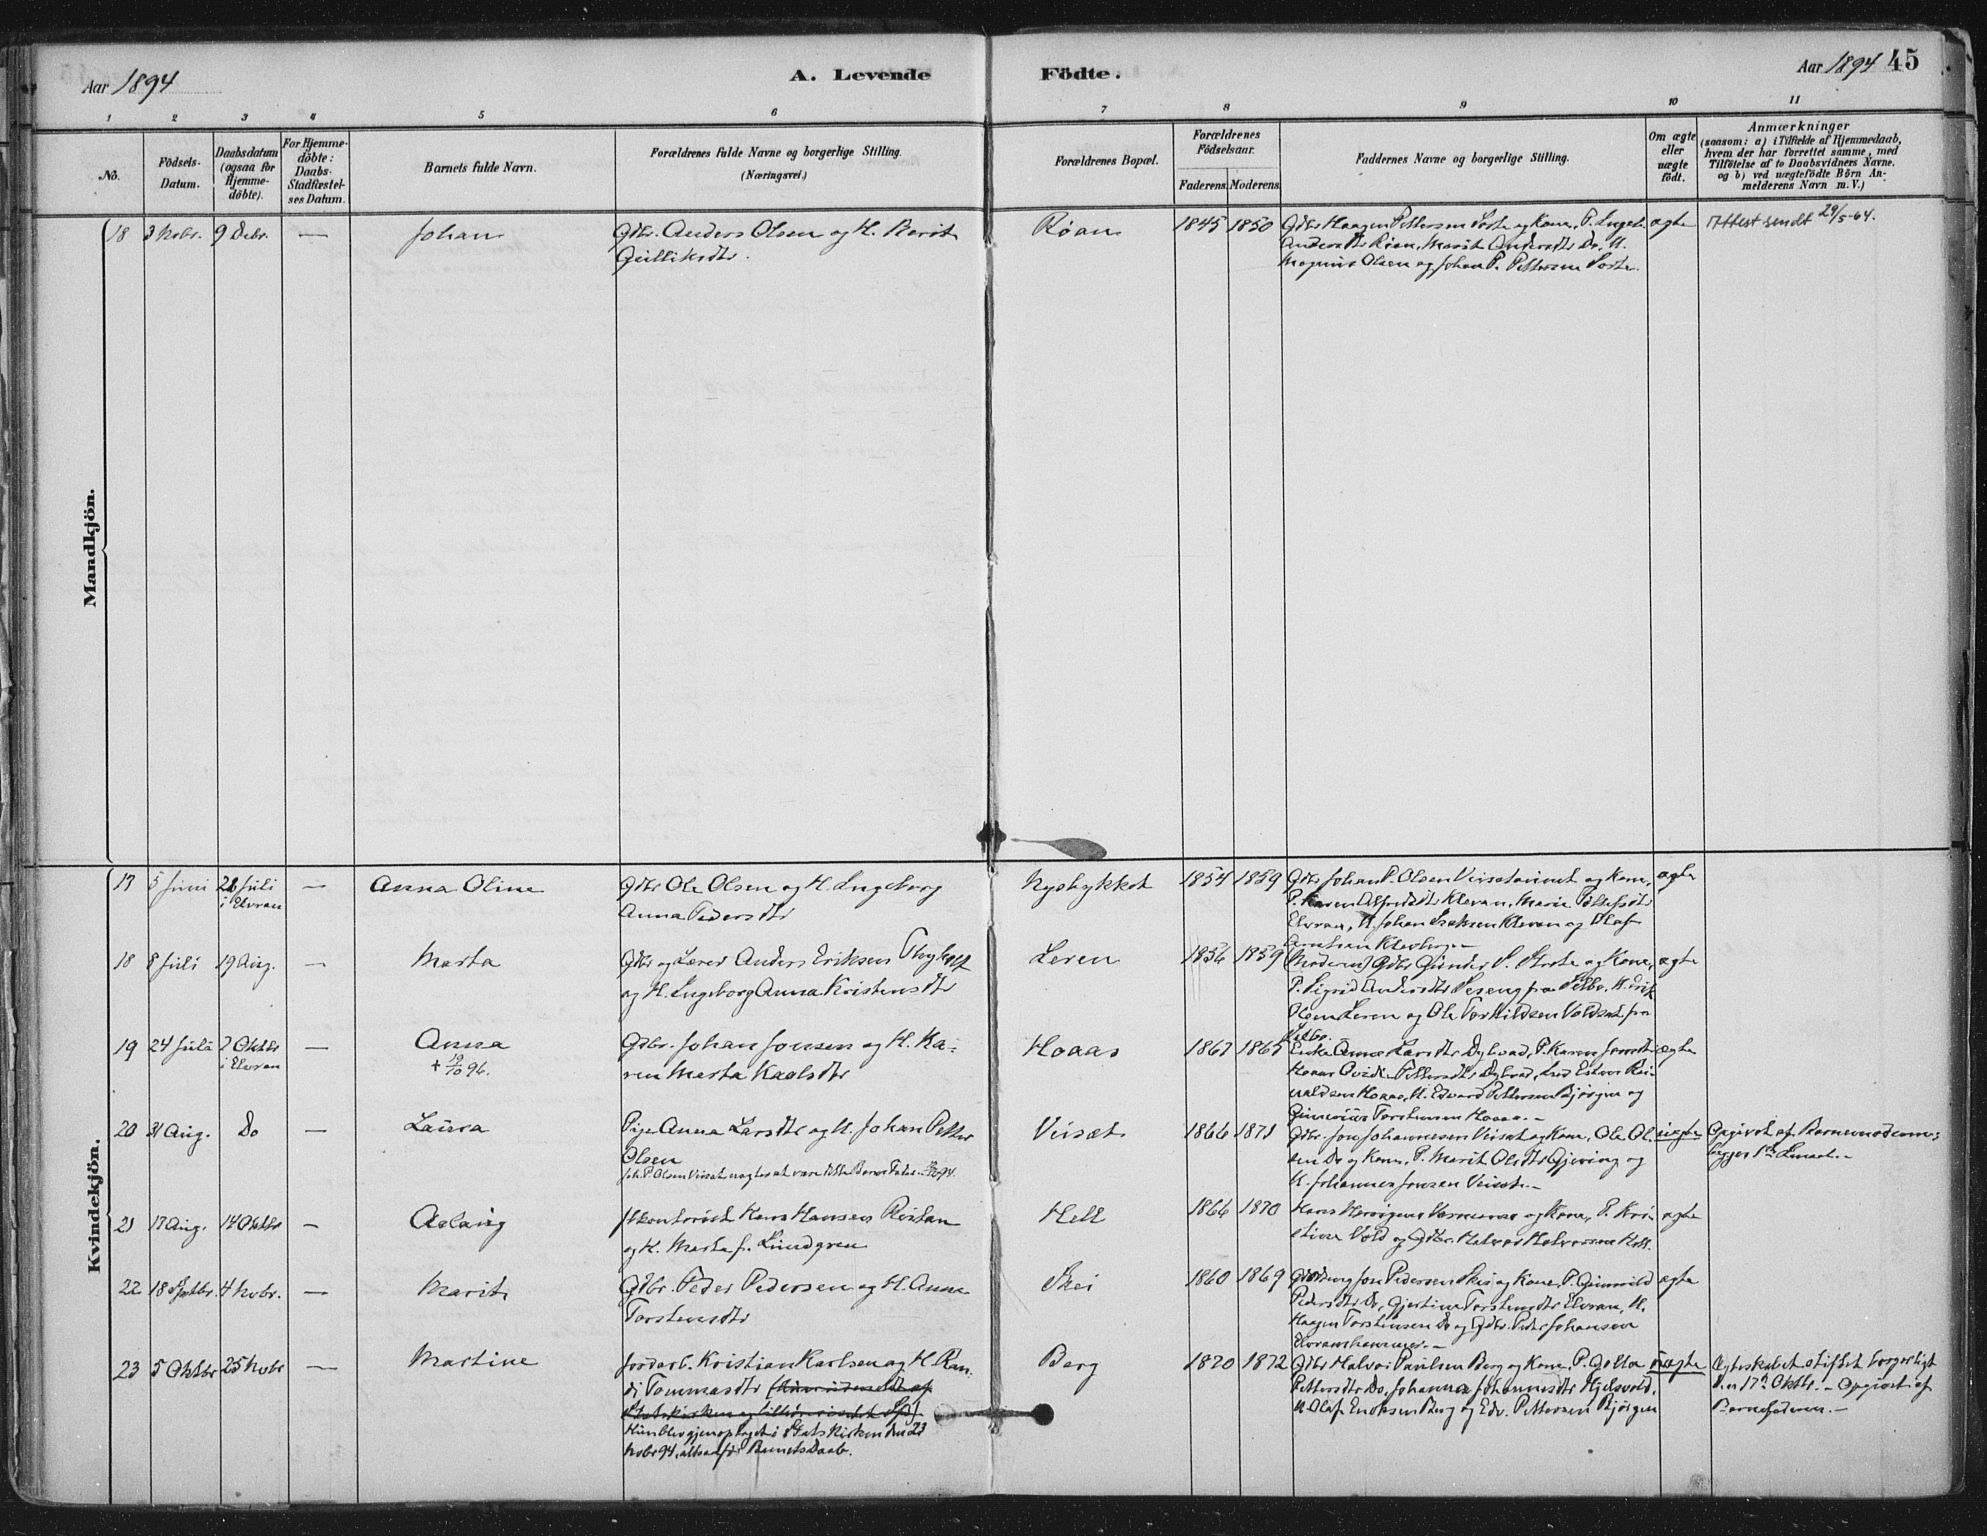 Aar 1894
A. Levende
Födte.
Aar 1894 45
1 2 3 4 5 6 7 8 9 10 11
No.
Födsels-
Datum.
Daabsdatum
(ogsaa for
Hjemme-
döbte).
For Hjemme-
döbte:
Daabs-
Stadfæstel-
ses Datum.
Barnets fulde Navn.
Forældrenes fulde Navne og borgerlige Stilling.
(Næringsvei.)
Forældrenes Bopæl.
Forældrenes
Födselsaar.
Faderens. Moderens.
Faddernes Navne og borgerlige Stilling.
Om ægte
eller
uægte
födt.
Anmærkninger
(saasom: a) i Tilfælde af Hjemmedaab,
hvem der har forrettet samme, med
Tilföielse af to Daabsvidners Navne,
og b) ved uægtefödte Börn An-
melderens Navn m. V.)
Mandkjön.
18 3 Novbr. 9 Debr. — Johan
Gdbr. Anders Olsen og H. Berit
Gulliksdtr.
Røan 1845 1850
Gdbr Haagen Pettersen Sorte og Kone, P. Ingeb.
Andersdtr Røan, Marit Andersdtr Do, U.
Magnus Olsen og Johan P. Pettersen Sorte.
ægte
Attest sendt 29/5-64.
Kvindekjön.
17 5 Juni 22 Juli
i Elvran
— Anna Oline
Gdbr Ole Olsen og H. Ingeborg
Anna Pedersdtr
Nyhykket 1854 1859
Gdbr Johan P. Olsen og Kone,
P. Karen Alfredsdtr Klevan, Marie
Elvran, U. Johan Isaksen Klevan og Olaf
ægte
18 8 Juli 19 Aug. — Marta
Gdbr og Lærer Anders Eriksen Thyholt
og H. Ingeborg Anna Kristensdtr
Leren 1856 1859
(Moderen) Gdbr P. Storte og Kone,
P. Sigrid Andersdtr fra Selbo, U. Erik
Olsen Leren og Ole Torkildsen Voldset fra
Selbo.
ægte
19 24 Juli 7 Oktbr
i Elvran
— Anna
+ 19/10 96.
Gdbr. Johan Jonsen og H. Ka-
ren Marta Karlsdtr
Hoaas 1867 1865
Enke Anna Larsdtr Dybvad, P. Karen Jonsdtr
Hoaas Pettersdtr Dybvad,
Hoaas, U. Edvard Pettersen Bjørgen og
Torstensen Hoaas.—
ægte
20 31 Aug. Do — Laura
Pige Anna Larsdtr og U. Johan Petter
Olsen
Joh. P. Olsen Viisat nægter at være dette Barns Fader.
Viisat 1866 1871
Gdbr. Jon Johannesen Viisat og Kone, Ole Ol-
sen Do og Kone, P. Marit Olsdtr Gjeving og
U. Johannes Jonsen Viisat.—
uægte
Opgivet af Barnemoderen;
21 17 Aug. 14 Oktbr — Aslaug
Hans Hansen Ristan
og H. Marta f. Lundgren
Hell 1866 1870
Hans og Kone, P. Kri-
stine Vold og Gdbr. Halvor Halvorsen Hell.
ægte
22 18 Septbr. 4 Novbr. — Marit
Gdbr. Peder Pedersen og H. Anna
Torstensdtr
Skei 1860 1869
Jon Pedersen Skei og Kone, P. Gunnild
Pedersdtr Do, Gjertine Torstensdtr Elvran, U.
Haagen Torstensen Do og Gdbr. Peder Johansen
Elvranshammer.—
ægte
23 5 Oktbr 25 Novbr — Martine
Jordarb. Kristian Karlsen og H. Ran-
di Tommasdtr
Statskirken
Hun blev gjenoptaget i Statskirken den 23
Novbr 94, altsaa før Barnets Daab.
Berg 1870 1872
Gdbr Halvor Paulsen Berg og Kone, P. Golla
Pettersdtr Do, Johanna Johannesdtr Hjelsvold,
U. Olaf Eriksen Berg og Edv. Pettersen Bjørgen
uægte
Ægteskabet stiftet borgerligt
den 17de Oktbr. — Opgivet af
Barnefaderen.—